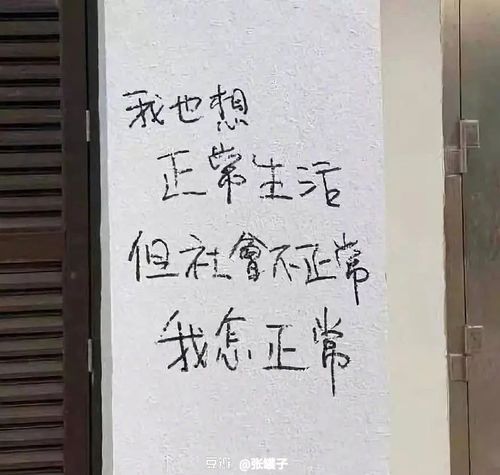 我也想
正常生活
但社會不正常
我怎正常
豆瓣 @张蠛子